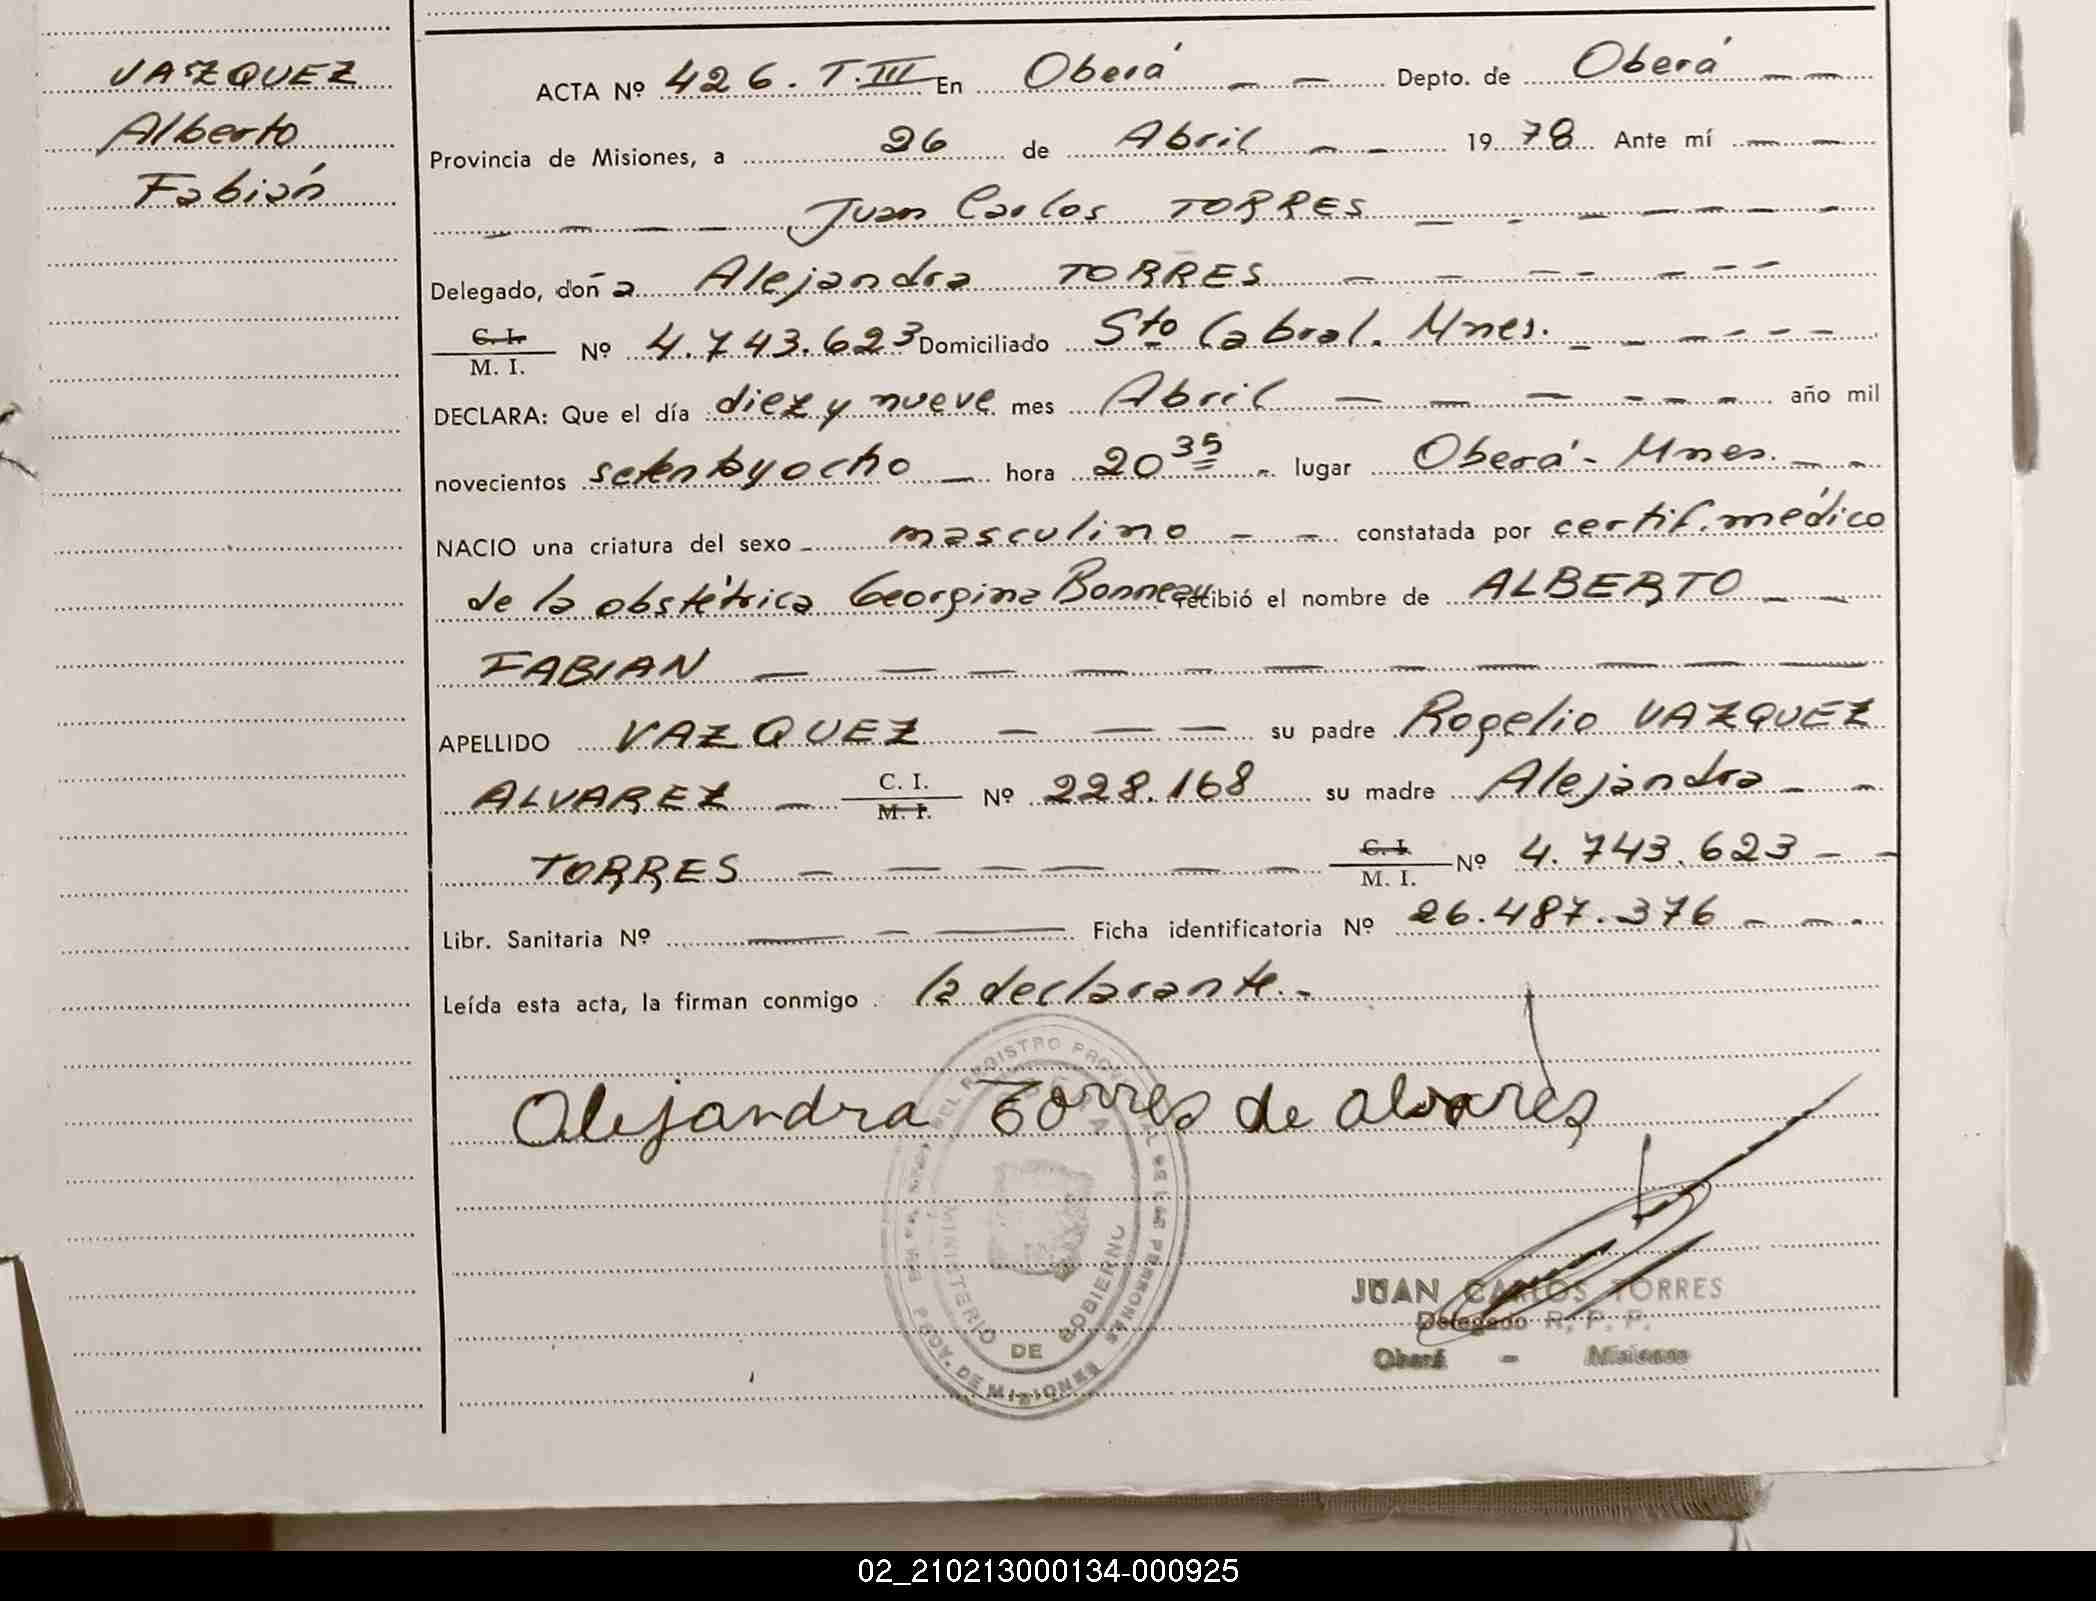 VAZQUEZ
Alberto
Fabián
ACTA Nº 426. T.III En Oberá Depto. de Oberá
Provincia de Misiones, a 26 de Abril 1978 Ante mí
Juan Carlos TORRES
Delegado, doña Alejandra TORRES
C. I.
M. I. Nº 4.743.623 Domiciliado Sto Cabral. Mnes.
DECLARA: Que el día diez y nueve mes Abril año mil
novecientos setenta y ocho hora 20 35 lugar Oberá - Mnes.
NACIO una criatura del sexo masculino constatada por certif. médico
de la obstétrica Georgina Bonneau recibió el nombre de ALBERTO
FABIAN
APELLIDO VAZQUEZ su padre Rogelio VAZQUEZ
ALVAREZ C. I. M. I. Nº 228.168 su madre Alejandra
TORRES C. I. M. I. Nº 4.743.623
Libr. Sanitaria Nº Ficha identificatoria Nº 26.487.376
Leída esta acta, la firman conmigo la declarante.
Alejandra Torres de alvares
REGISTRO PROVINCIAL DE LAS PERSONAS
MINISTERIO DE GOBIERNO
PROV. DE MISIONES
JUAN CARLOS TORRES
Delegado R. P. P.
Oberá - Misiones
02_210213000134-000925